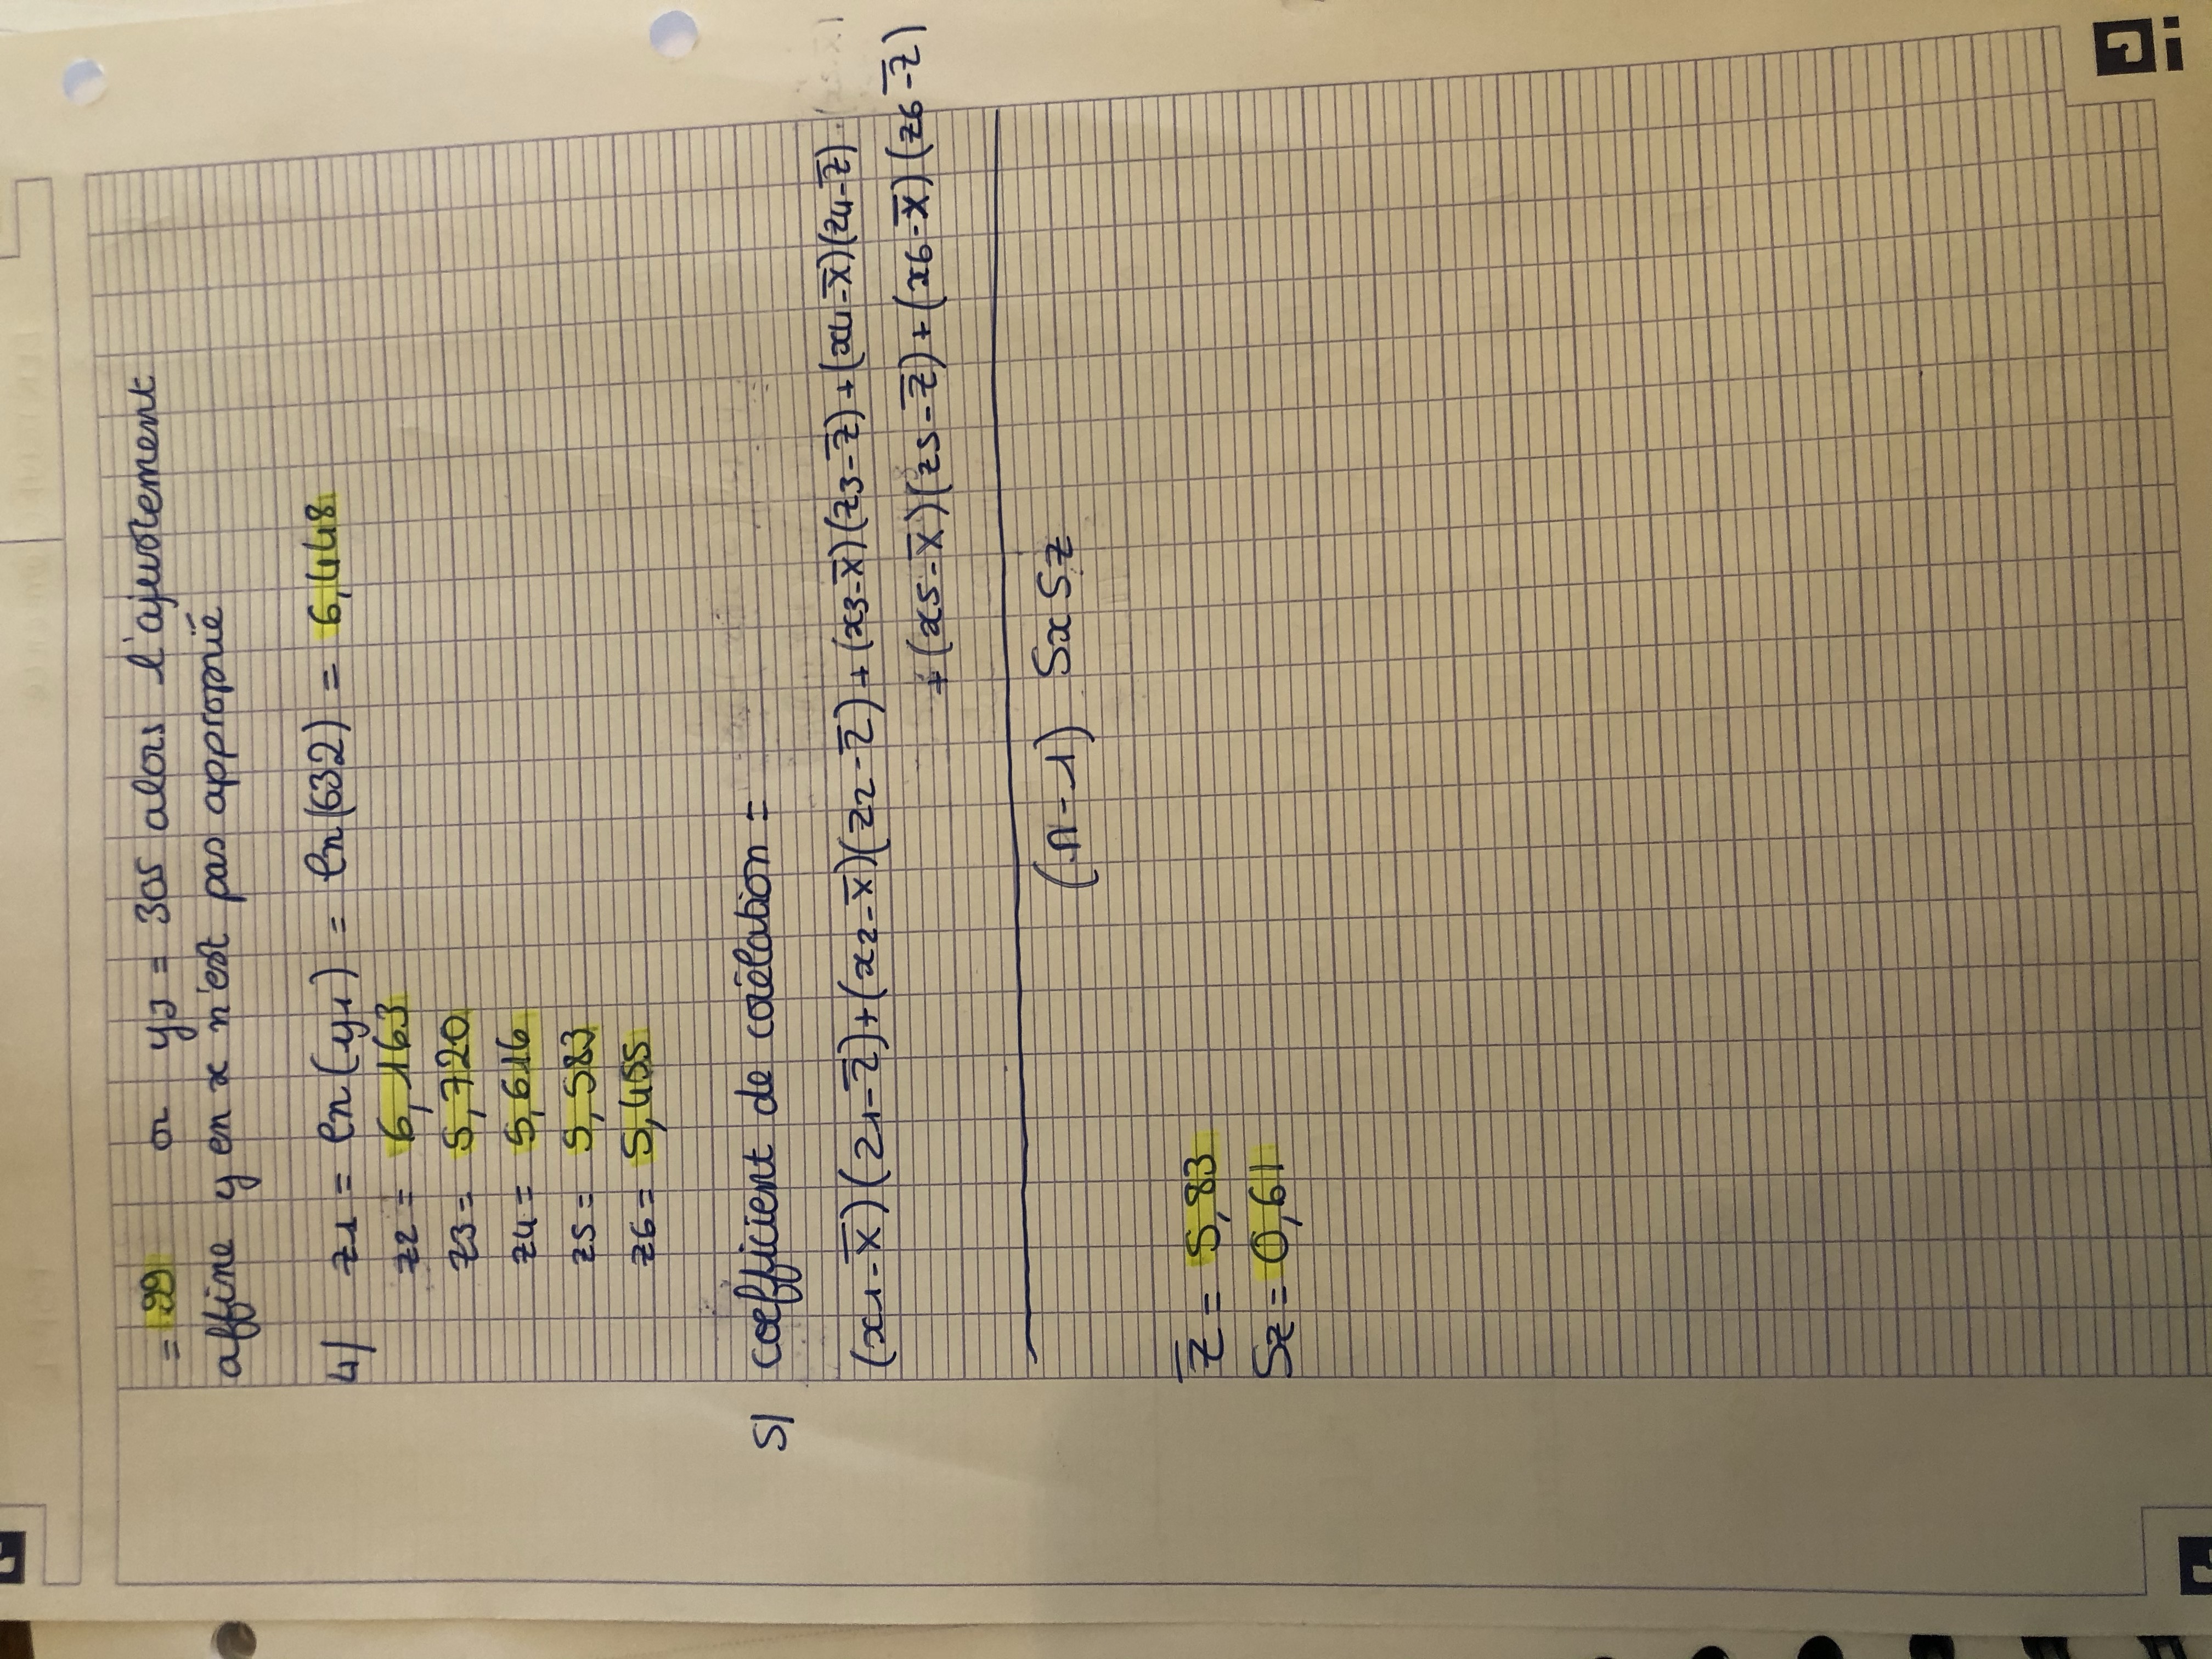 = 99 or y3 = 305 alors l'ajustement
affine y en x n'est pas approprié
4) z1 = ln(y1) = ln(632) = 6,448
z2 = 6,163
z3 = 5,720
z4 = 5,616
z5 = 5,583
z6 = 5,455
5) coefficient de corélation =
(x1-x̅)(z1-z̅)+(x2-x̅)(z2-z̅)+(x3-x̅)(z3-z̅)+(x4-x̅)(z4-z̅)
+(x5-x̅)(z5-z̅)+(x6-x̅)(z6-z̅)
(n-1) Sx Sz
z̅ = 5,83
Sz = 0,61